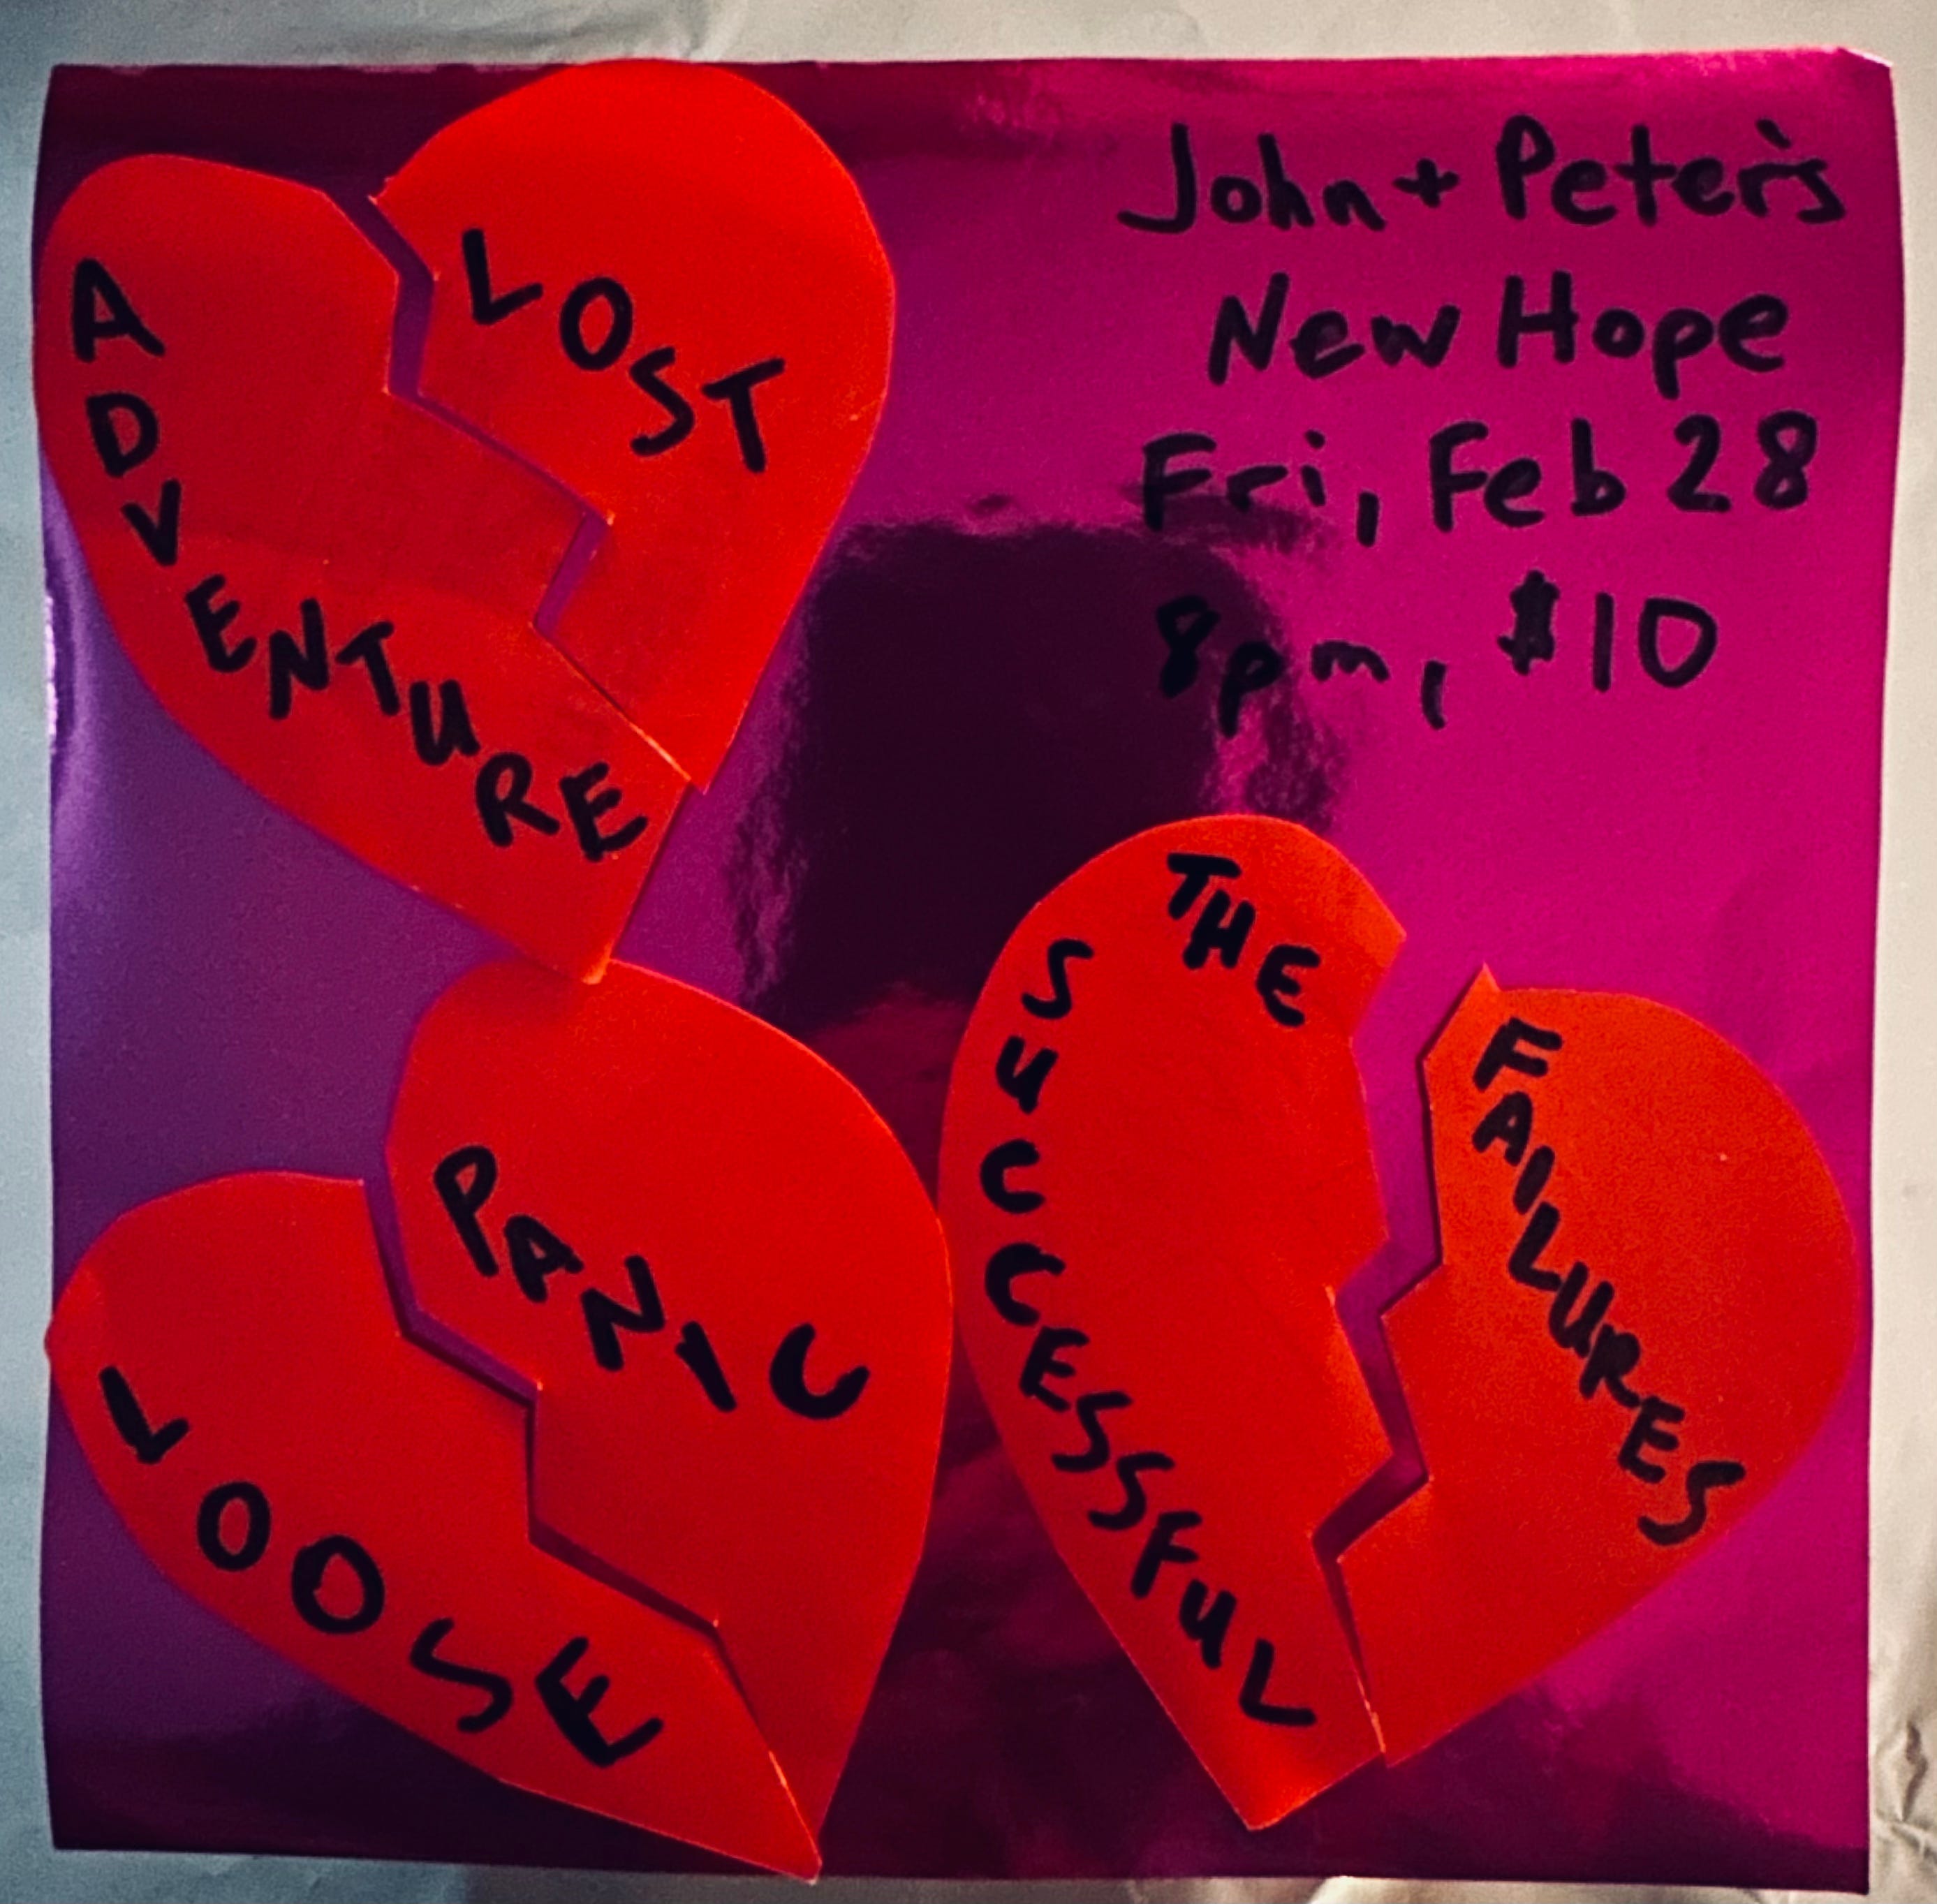 John + Peter's
New Hope
Fri, Feb 28
8pm, $10
LOST
ADVENTURE
THE
SUCCESSFUL
FAILURES
PANIC
LOOSE